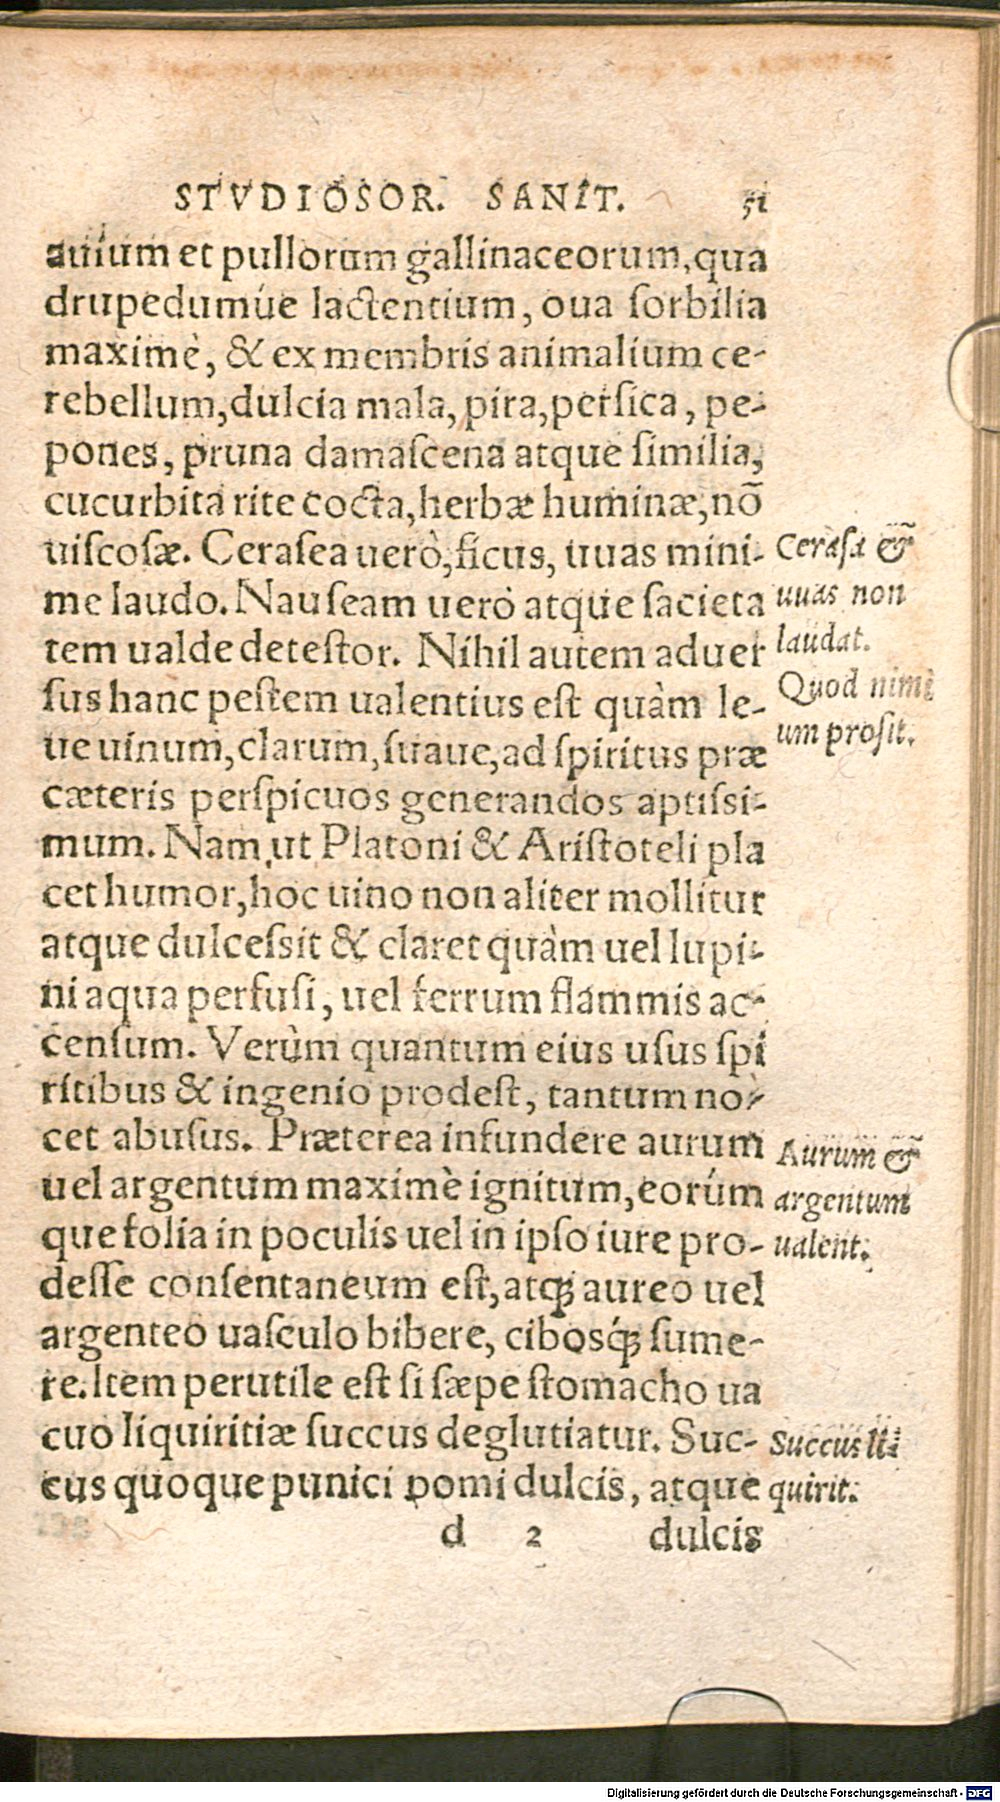 STVDIOSOR. SANIT. 51
auium et pullorum gallinaceorum, qua
drupedumúe lactentium, oua sorbilia
maximè, & ex membris animalium ce-
rebellum, dulcia mala, pira, persica, pe-
pones, pruna damascena atque similia,
cucurbita rite cocta, herbæ huminæ, nō
uiscosæ. Cerasea uerò, ficus, uuas mini-
me laudo. Nauseam uerò atque sacieta
tem ualde detestor. Nihil autem aduer
sus hanc pestem ualentius est quàm le-
ue uinum, clarum, suaue, ad spiritus præ
cæteris perspicuos generandos aptissi-
mum. Nam, ut Platoni & Aristoteli pla
cet humor, hoc uino non aliter mollitur
atque dulcessit & claret quàm uel lupi-
ni aqua perfusi, uel ferrum flammis ac-
censum. Verùm quantum eius usus spi
ritibus & ingenio prodest, tantum no-
cet abusus. Præterea infundere aurum
uel argentum maximè ignitum, eorúm
que folia in poculis uel in ipso iure pro-
desse consentaneum est, atq; aureo uel
argenteo uasculo bibere, cibosq́; sume-
re. Item perutile est si sæpe stomacho ua
cuo liquiritiæ succus deglutiatur. Suc-
cus quoque punici pomi dulcis, atque
d 2 dulcis
Cerasa &
uuas non
laudat.
Quod nimi
um prosit.
Aurum &
argentum
ualent.
Succus li-
quirit.
Digitalisierung gefördert durch die Deutsche Forschungsgemeinschaft - DFG